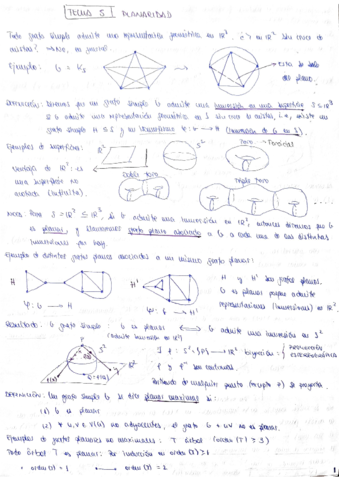 TEMA 5 PLANARIDAD
Todo grafo simple admite una representación geométrica en ℝ³, ¿Y en ℝ² sin cruce de
aristas? → No, en general.
Ejemplo: G = K₅
Definición: Diremos que un grafo simple G admite una inmersión en una superficie S ⊆ ℝ³
si G admite una representación geométrica en S sin cruce de aristas, i.e., existe un
grafo simple H ⊆ S y un isomorfismo φ: G → H (inmersión de G en S).
Ejemplos de superficies: ℝ² S² Toro
ℝ²: es
una superficie no
acotada (infinita).
Doble toro
Triple toro
Nota: Para S = ℝ² ⊆ ℝ³. Si G admite una inmersión en ℝ², entonces diremos que G
es planar y llamaremos grafo plano asociado a G a cada una de las distintas
inmersiones que hay.
Ejemplo de distintos grafos planos asociados a un mismo grafo planar:
H H'
H y H' son grafos planos.
G es planar porque admite
representaciones (inmersiones) en ℝ²
φ: G → H φ: G → H'
Resultado: G grafo simple: G es planar ⟺ G admite una inmersión en S²
(admite inmersión en ℝ²)
P S²
∃ f: S² - {P} → ℝ² biyección: PROYECCIÓN ESTEREOGRÁFICA
f y f⁻¹ son continuas.
Definición: Un grafo simple G se dice planar maximal si:
(1) G es planar
(2) ∀ u,v ∈ V(G) no adyacentes, el grafo G + uv no es planar.
Ejemplos de grafos planares no maximales: T árbol (orden (T) ≥ 3)
Todo árbol T es planar: Por inducción en orden (T) ≥ 1
• orden (T) = 1 orden (T) = 2
1